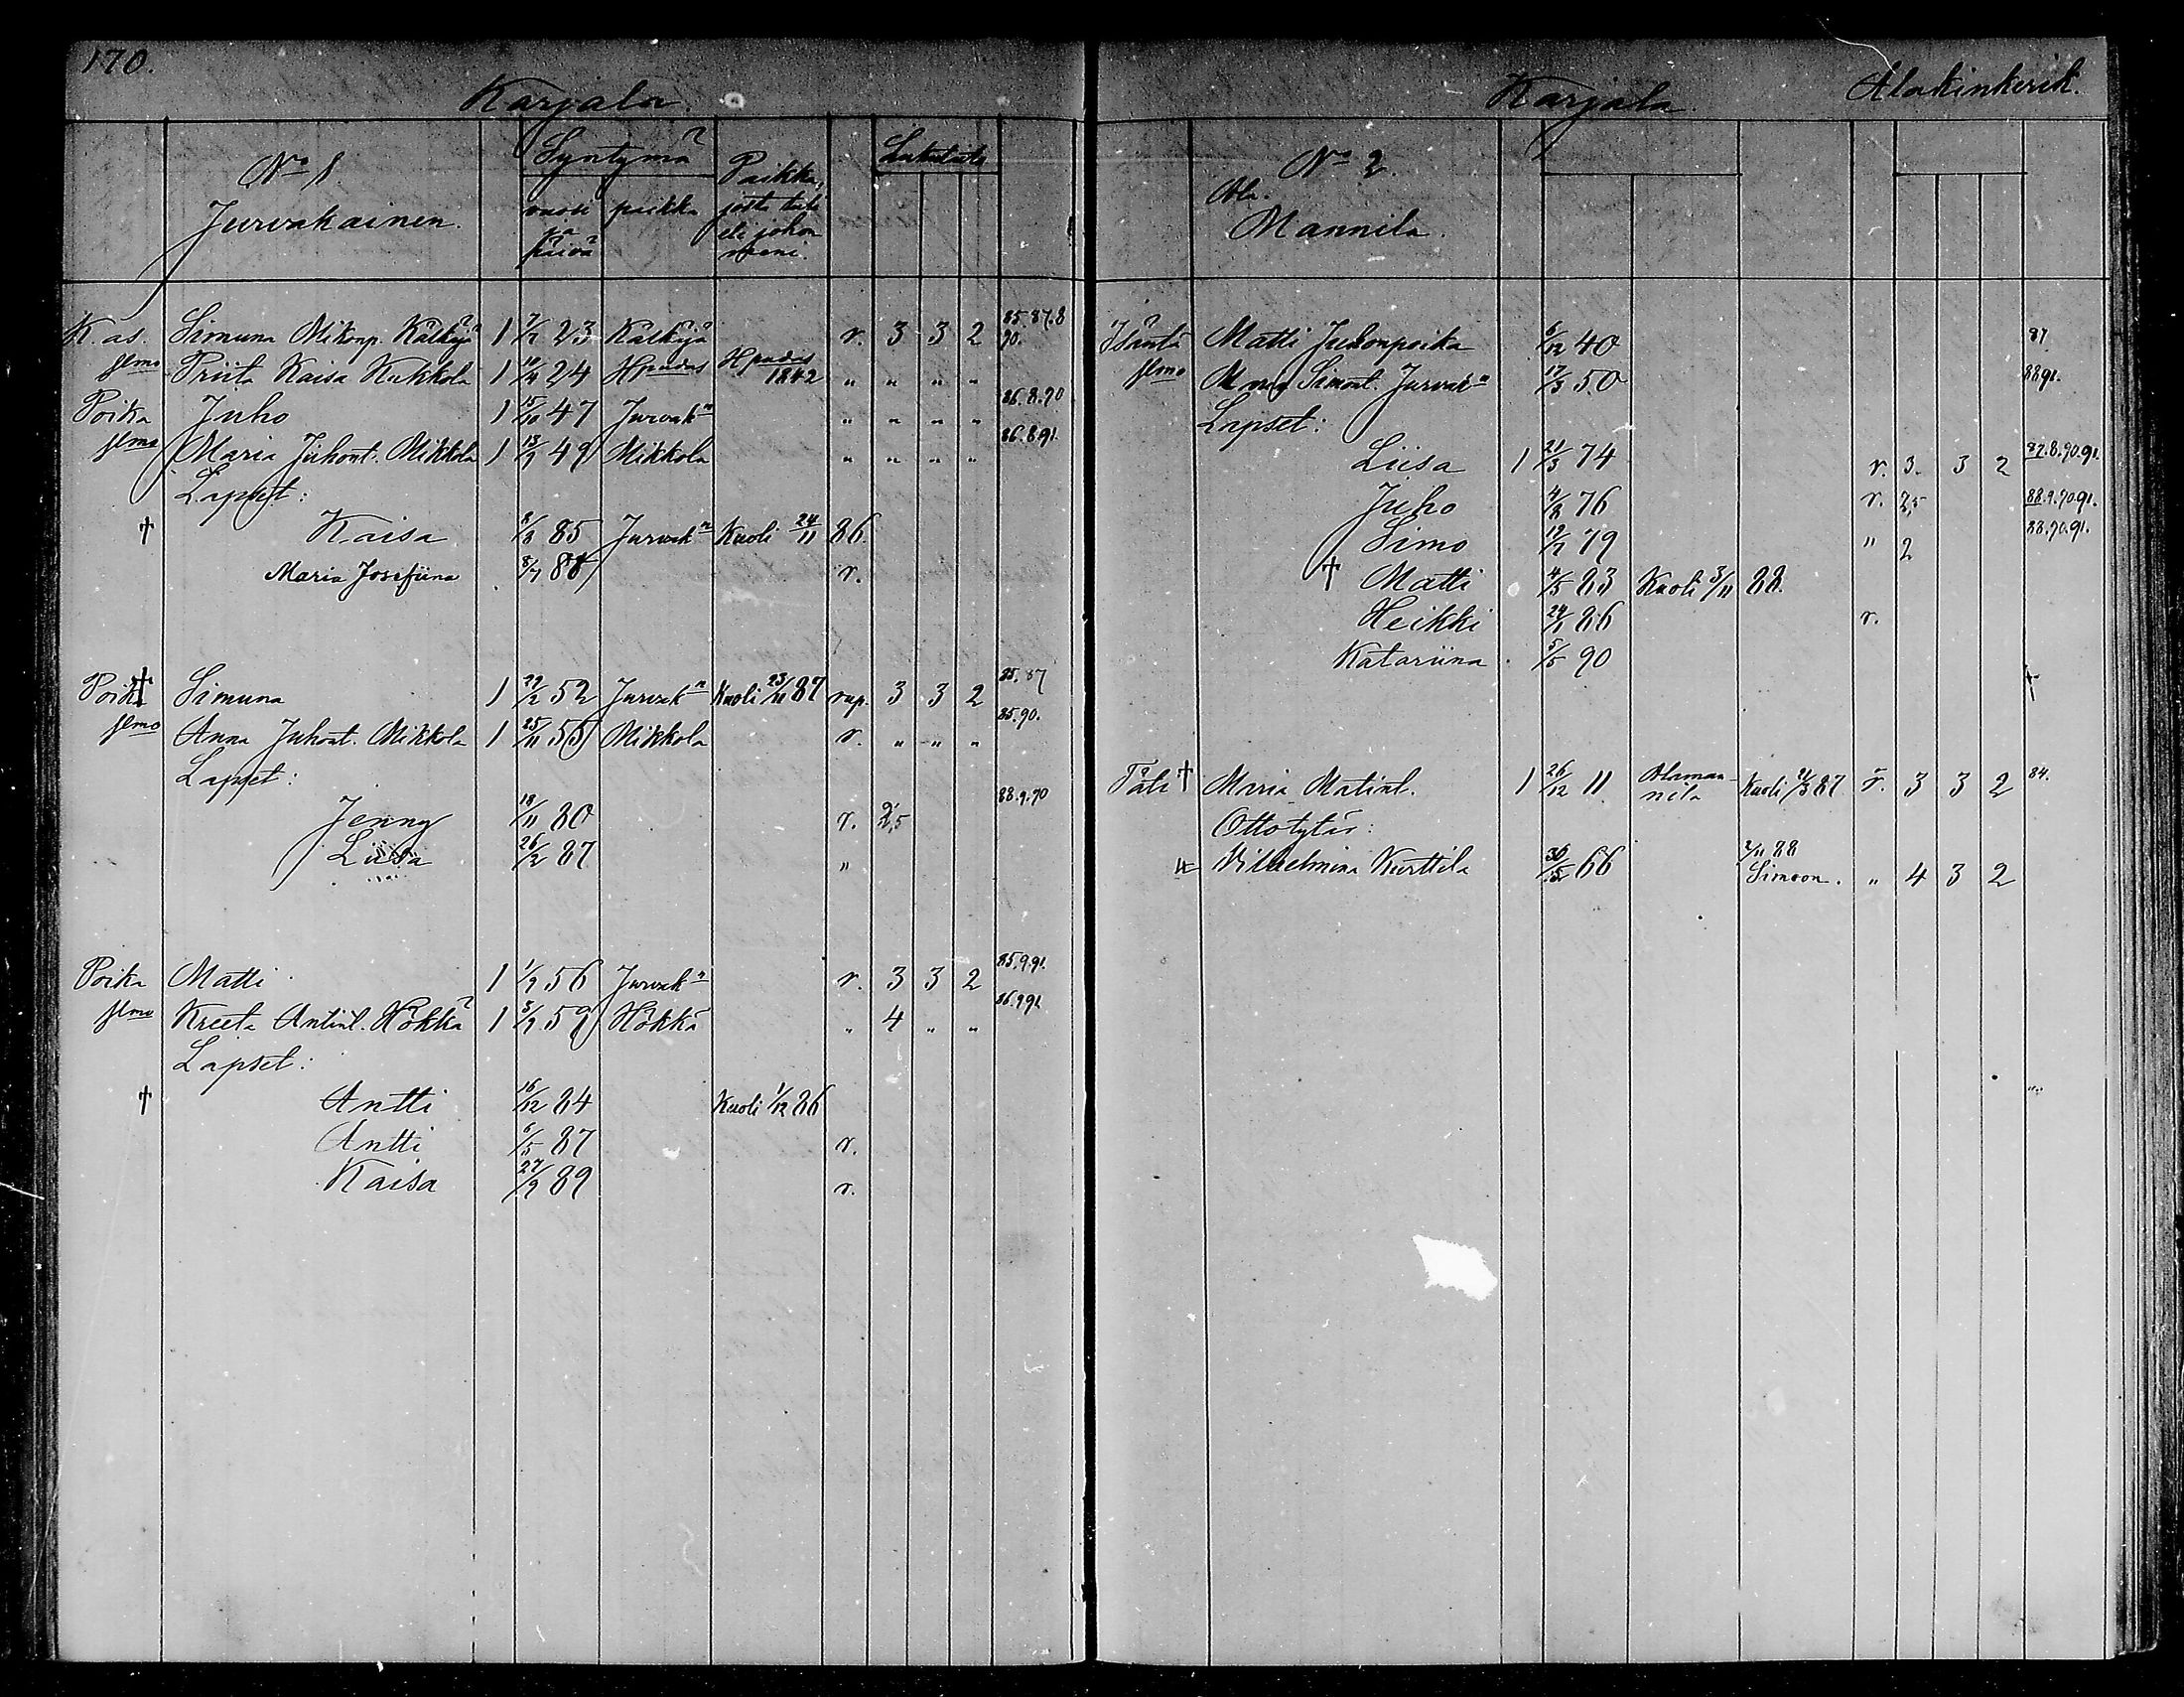 170.
Karjala.
No 1
Jurvakainen.
Syntymä
vuosi ja päivä
paikka
Paikka, josta tuli eli johon meni.
Lukutaito
K. as. Simuna Mikonp. Kälkäjä 1 7/2 23 Kälkäjä r. 3 3 2 85.87.8 90.
Priita Kaisa Kukkola 1 24 Hpudas Hpudas 1842 " " " "
Poika Juho 1 15/10 47 Jurvak:n " " " " 86.8.90
Maria Juhont. Mikkola 1 13/9 49 Mikkola " " " " 86.8.91.
Lapset:
† Kaisa 8/8 85 Jurvak:n Kuoli 24/11 86.
Maria Josefiina 8/7 88 r.
Poika † Simuna 1 29/2 52 Jurvak:n Kuoli 23/11 87 rup. 3 3 2 85.87
Anna Juhont. Mikkola 1 25/11 55 Mikkola r. " " " 85.90.
Lapset:
Jenny 18/11 80 r. 2,5 88.9.90
Liisa 26/2 87 "
Poika Matti 1 1/9 56 Jurvak:n r. 3 3 2 85.9.91.
Kreeta Antint. Hökkä 1 3/9 59 Hökkä " 4 " " 86.9.91.
Lapset:
† Antti 16/12 84 Kuoli 1/12 86
Antti 6/5 87 r.
Kaisa 27/9 89 r.
Karjala Alakinkerik.
No 2.
Ala.
Mannila.
Isäntä Matti Juhonpoika 6/12 40 87
Simont. Jurvak:n 17/3 50 88.91.
Lapset:
Liisa 1 21/3 74 r. 3. 3 2 87.8.90.91.
Juho 4/8 76 r. 2,5 88.9.90.91.
Simo 12/2 79 " 2 88.90.91.
† Matti 4/5 83 Kuoli 3/11 88.
Heikki 24/1 86 r.
Katariina 5/5 90
Täti † Maria Matint. 1 26/12 11 Alamannila Kuoli 87 r. 3 3 2 84.
Ottotytär:
Vilhelmina Kurttila 30/5 66 2/11 88 Simoon. " 4 3 2